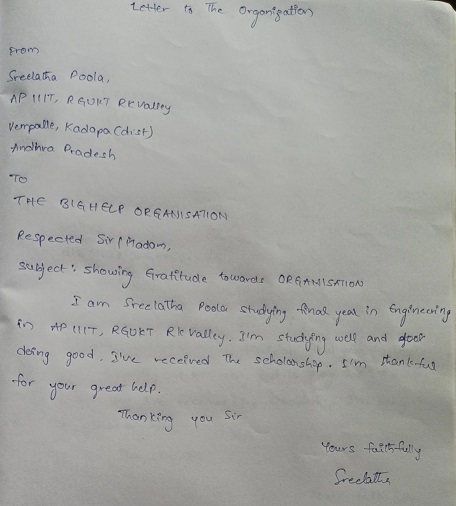 Letter to The Organization
From
Sreelatha Poola,
AP IIIT, RGUKT RK Valley
Vempalle, Kadapa (dist)
Andhra Pradesh
TO
THE BIG HELP ORGANISATION
Respected Sir/Madam,
Subject: Showing Gratitude towards ORGANISATION
I am Sreelatha Poola studying final year in Engineering
in AP IIIT, RGUKT RK Valley. I'm studying well and
doing good. I've received The scholarship. I'm thankful
for your great help.
Thanking you Sir
Yours faithfully
Sreelatha